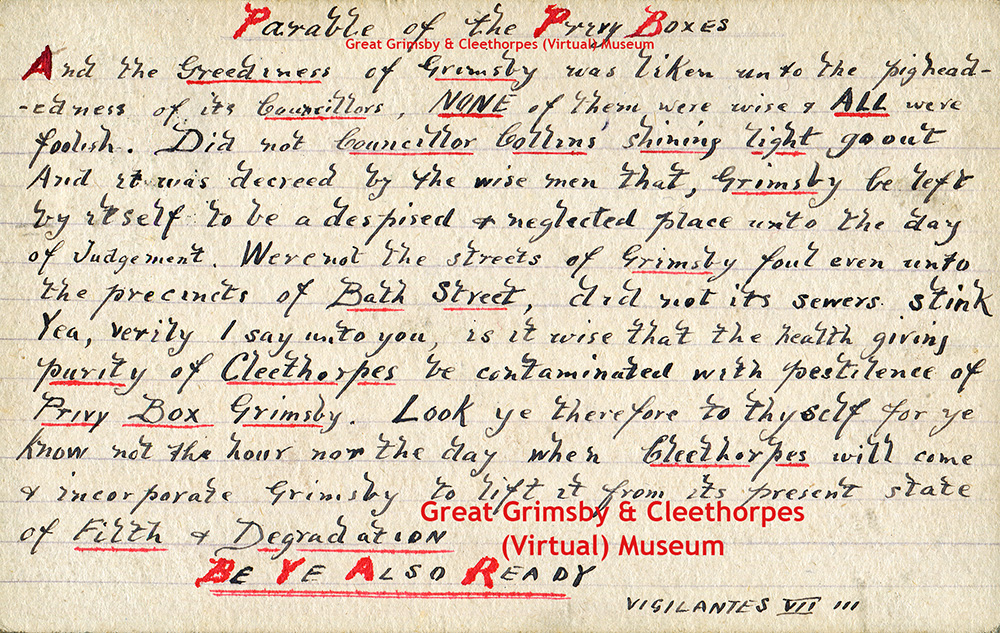 Parable of the Privy Boxes
Great Grimsby & Cleethorpes (Virtual) Museum
And the Greediness of Grimsby was liken unto the pighead-
-edness of its Councillors, NONE of them were wise & ALL were
foolish. Did not Councillor Collins shining light go out
And it was decreed by the wise men that, Grimsby be left
by itself to be a despised & neglected place unto the day
of Judgement. Were not the streets of Grimsby foul even unto
the precincts of Bath Street, did not its sewers stink
Yea, verily I say unto you, is it wise that the health giving
purity of Cleethorpes be contaminated with pestilence of
Privy Box Grimsby. Look ye therefore to thyself for ye
know not the hour nor the day when Cleethorpes will come
& incorporate Grimsby to lift it from its present state
of Filth & Degradation
Great Grimsby & Cleethorpes
(Virtual) Museum
BE YE ALSO READY
VIGILANTES VII III